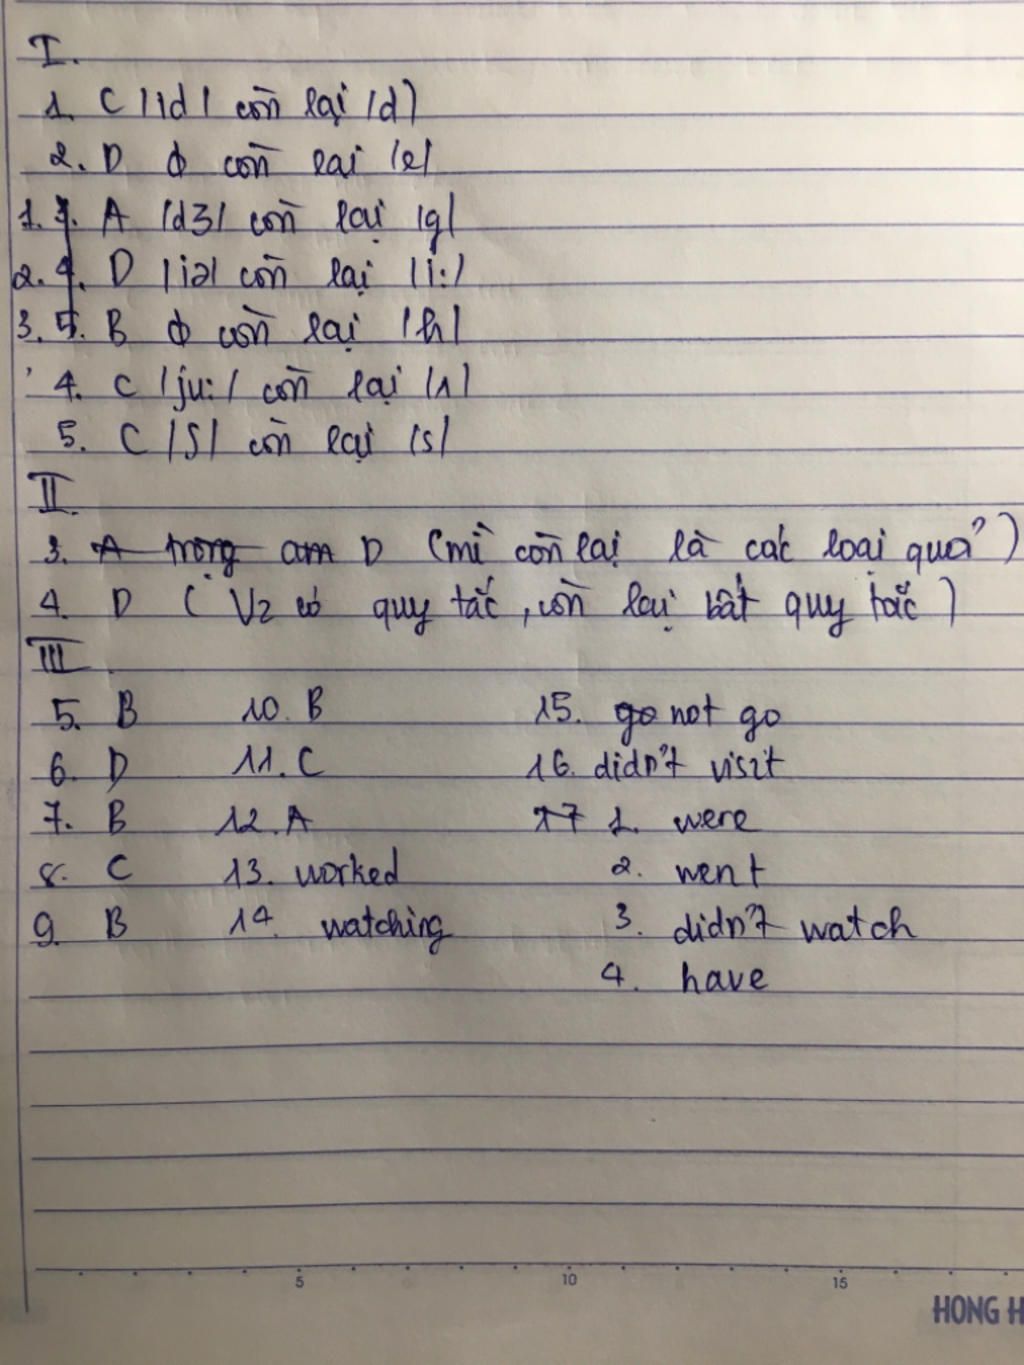 I.
1. C /ɪd/ còn lại /d/
2. D ϕ còn lại /e/
1. A /dʒ/ còn lại /g/
2. 4. D /iə/ còn lại /i:/
3. 5. B ϕ còn lại /h/
4. C /ju:/ còn lại /ʌ/
5. C /ʃ/ còn lại /s/
II.
3. A trọng am D (mì còn lại là các loại quả)
4. D (V2 có quy tắc, còn lại bất quy tắc)
III
5. B 10. B 15. go not go
6. D 11. C 16. didn't visit
7. B 12. A 17 1. were
8. C 13. worked 2. went
9. B 14. watching 3. didn't watch
4. have
5 10 15
HONG H